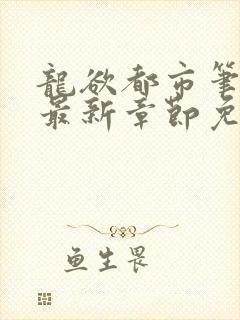 龍欲都市筆
最新章節免
鱼生畏